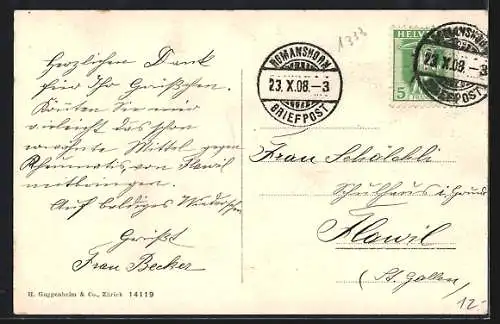 1323
HELVETIA
5
ROMANSHORN
23.X.08.-3
BRIEFPOST
ROMANSHORN
23.X.08.-3
BRIEFPOST
Herzlichen Dank
für Ihr Grüßchen.
Könten Sie mir
vieleicht das schon
erwähnte Mittel gegen
Rheumatis von Flawil
mitbringen.
Auf baldiges Wiedersehen
Grüßt
Frau Becker
Frau Schälchli
Schulhaus i. Grund
Flawil
(St. Gallen)
H. Guggenheim & Co., Zürich 14119
12.-